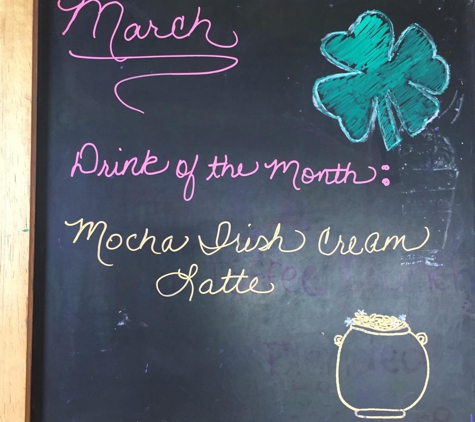 March
Drink of the Month:
Mocha Irish Cream
Latte